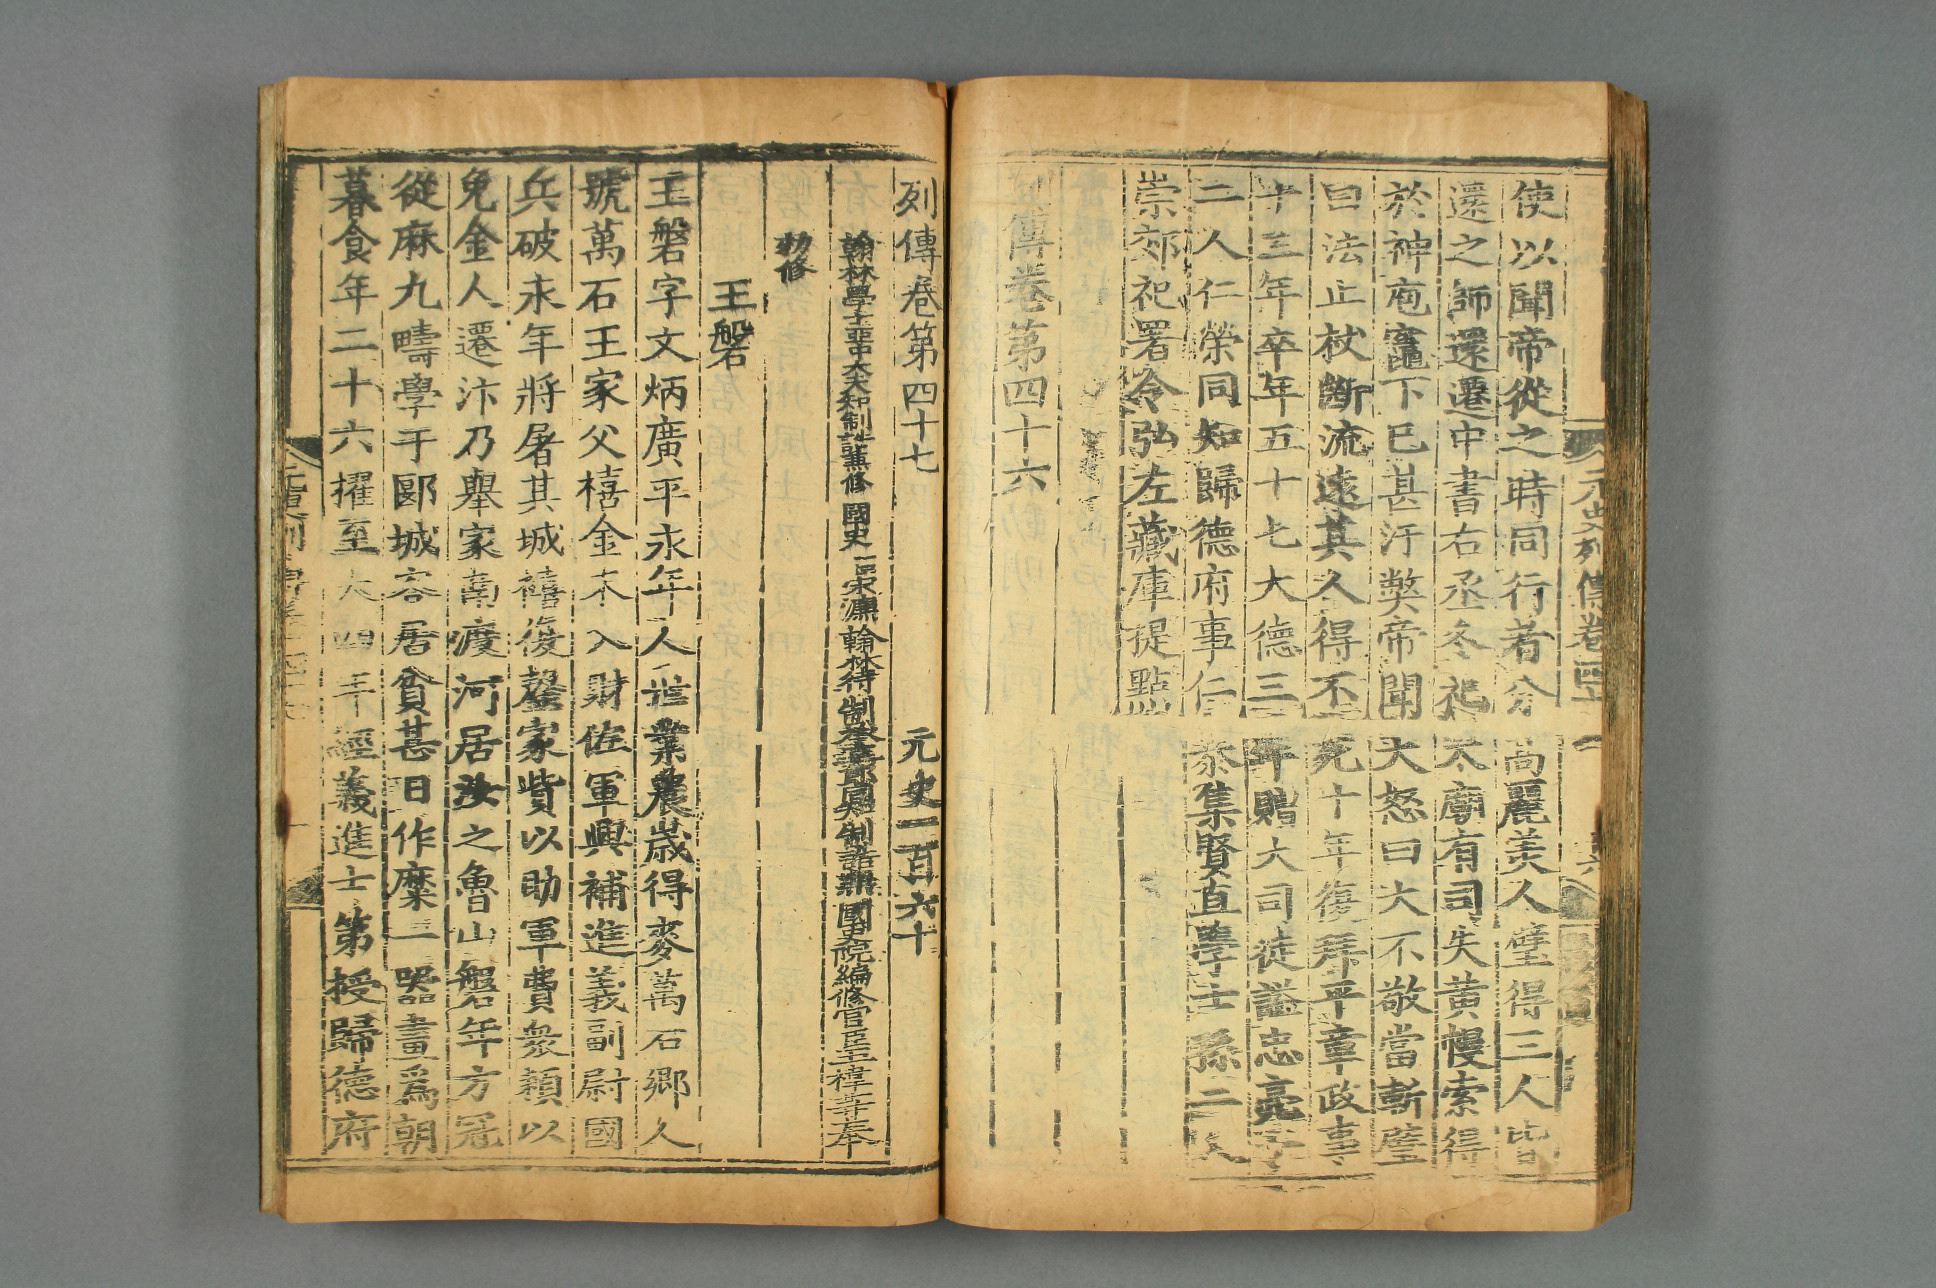 使以聞帝從之時同行者分高麗美人璧得三人皆
還之師還遷中書右丞冬祀太廟有司失黃幔索得
於神庖竈下已甚汙弊帝聞大怒曰大不敬當斬璧
曰法止杖斷流遠其人得不死十年復拜平章政事
十三年卒年五十七大德三年贈大司徒謚忠亮子
二人仁榮同知歸德府事仁恭集賢直學士孫二人
崇郊祀署令弘左藏庫提點
傳卷第四十六
元史列傳卷
列傳卷第四十七 元史一百六十
翰林學士亞中大夫知制誥兼修國史臣宋濂翰林待制承直郎同知制誥兼國史院編修官臣王禕等奉
勑修
王磐
王磐字文炳廣平永年人世業農歲得麥萬石鄉人
號萬石王家父禧金末入財佐軍興補進義副尉國
兵破永年將屠其城禧復罄家貲以助軍費衆賴以
免金人遷汴乃舉家南渡河居汝之魯山磐年方冠
從麻九疇學于郾城客居貧甚日作糜一器畫爲朝
暮食年二十六擢至大四年經義進士第授歸德府